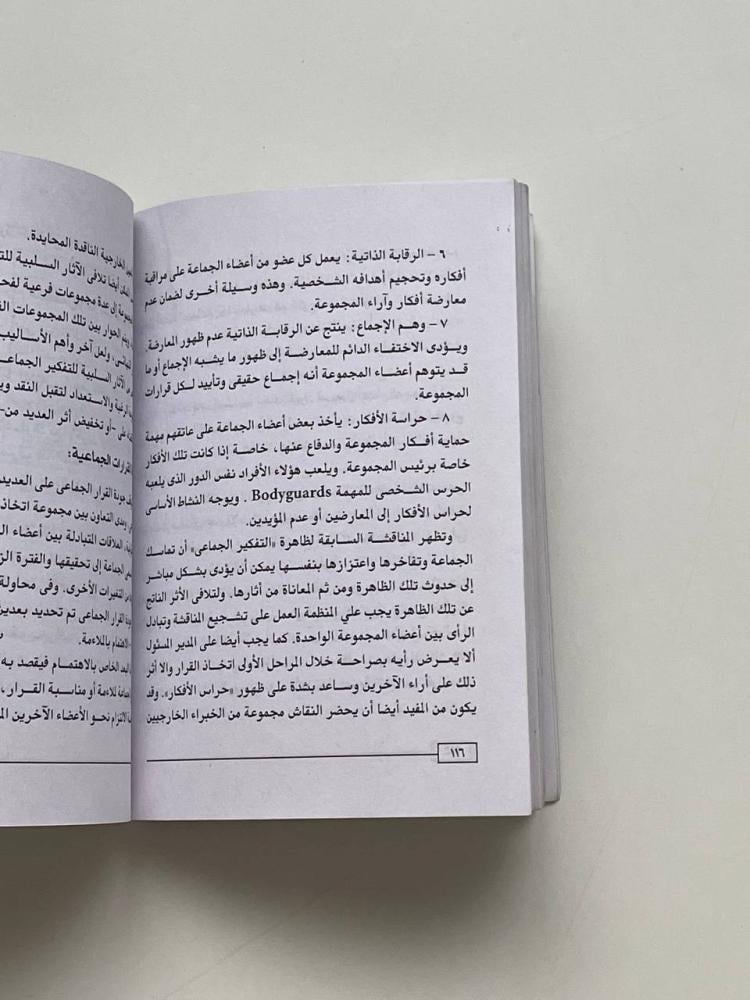 ٦ – الرقابة الذاتية: يعمل كل عضو من أعضاء الجماعة على مراقبة
أفكاره وتحجيم أهدافه الشخصية. وهذه وسيلة أخرى لضمان عدم
معارضة أفكار وآراء المجموعة.
٧ – وهم الإجماع: ينتج عن الرقابة الذاتية عدم ظهور المعارضة.
ويؤدى الاختفاء الدائم للمعارضة إلى ظهور ما يشبه الإجماع أو ما
قد يتوهم أعضاء المجموعة أنه إجماع حقيقى وتأييد لكل قرارات
المجموعة.
٨ – حراسة الأفكار: يأخذ بعض أعضاء الجماعة على عاتقهم مهمة
حماية أفكار المجموعة والدفاع عنها، خاصة إذا كانت تلك الأفكار
خاصة برئيس المجموعة. ويلعب هؤلاء الأفراد نفس الدور الذى يلعبه
الحرس الشخصى للمهمة Bodyguards . ويوجه النشاط الأساسى
لحراس الأفكار إلى المعارضين أو عدم المؤيدين.
وتظهر المناقشة السابقة لظاهرة «التفكير الجماعى» أن تماسك
الجماعة وتفاخرها واعتزازها بنفسها يمكن أن يؤدى بشكل مباشر
إلى حدوث تلك الظاهرة ومن ثم المعاناة من أثارها. ولتلافى الأثر الناتج
عن تلك الظاهرة يجب علي المنظمة العمل على تشجيع المناقشة وتبادل
الرأى بين أعضاء المجموعة الواحدة. كما يجب أيضا على المدير المسئول
ألا يعرض رأيه بصراحة خلال المراحل الأولى اتخاذ القرار والا أثر
ذلك على أراء الآخرين وساعد بشدة على ظهور «حراس الأفكار». وقد
يكون من المفيد أيضا أن يحضر النقاش مجموعة من الخبراء الخارجيين
١١٦
الخارجية الناقدة المحايدة.
أيضا تلافى الآثار السلبية
إلى عدة مجموعات فرعية
الحوار بين تلك المجموعات
ولعل آخر وأهم الأساليب
الآثار السلبية للتفكير
الرغبة والاستعداد لتقبل النقد
على –أو تخفيض أثر العديد من–
القرارات الجماعية:
جودة القرار الجماعى على العديد
ومدى التعاون بين مجموعة اتخاذ
العلاقات المتبادلة بين أعضاء
الجماعة إلى تحقيقها والفترة
من المتغيرات الأخرى. وفى محاولة
القرار الجماعى تم تحديد بعدين
الاهتمام بالملاءمة.
البعد الخاص بالاهتمام فيقصد به
للاءمة أو مناسبة القرار،
الالتزام نحو الأعضاء الآخرين